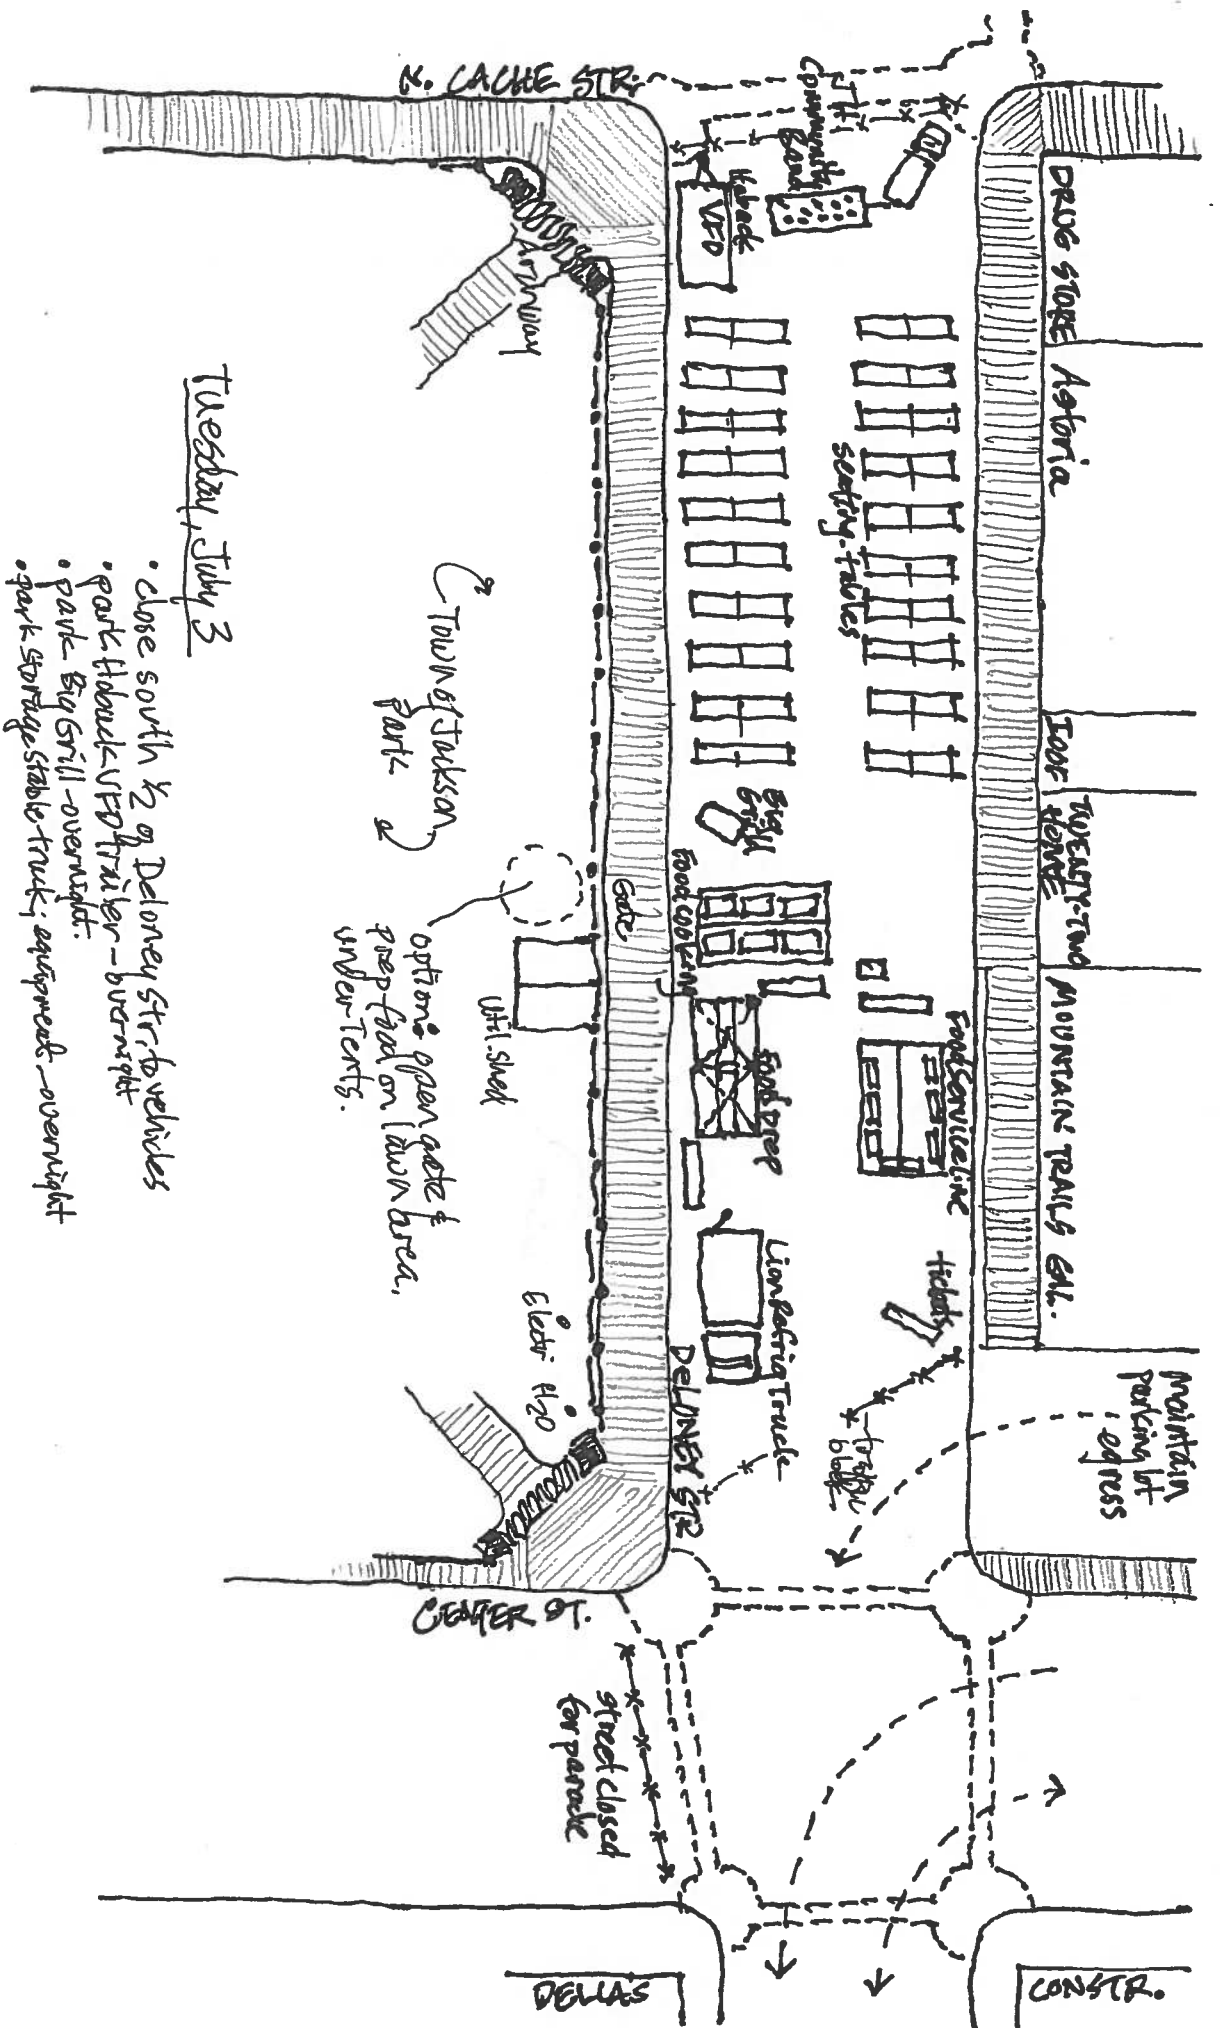 N. CACHE STR.
JH
Community
Band
Hoback
VFD
DRUG STORE
Astoria
IOOF
TWENTY-TWO
HOME
MOUNTAIN TRAILS GAL.
Maintain
parking lot
egress
seating-tables
Big
Grill
Food cooking
Food Prep
Food Service Line
tickets
Lion Refrig Truck
traffic
block
DELONEY STR
Archway
Gate
Town of Jackson
Park
Util. shed
option: open gate &
prep food on lawn area,
under Tents.
Electr
H2O
CENTER ST.
street closed
for parade
DELLAS
CONSTR.
Tuesday, July 3
• Close south 1/2 of Deloney Str. to vehicles
• park Hoback VFD trailer - overnight
• park Big Grill - overnight.
• park storage stable truck; equipment - overnight